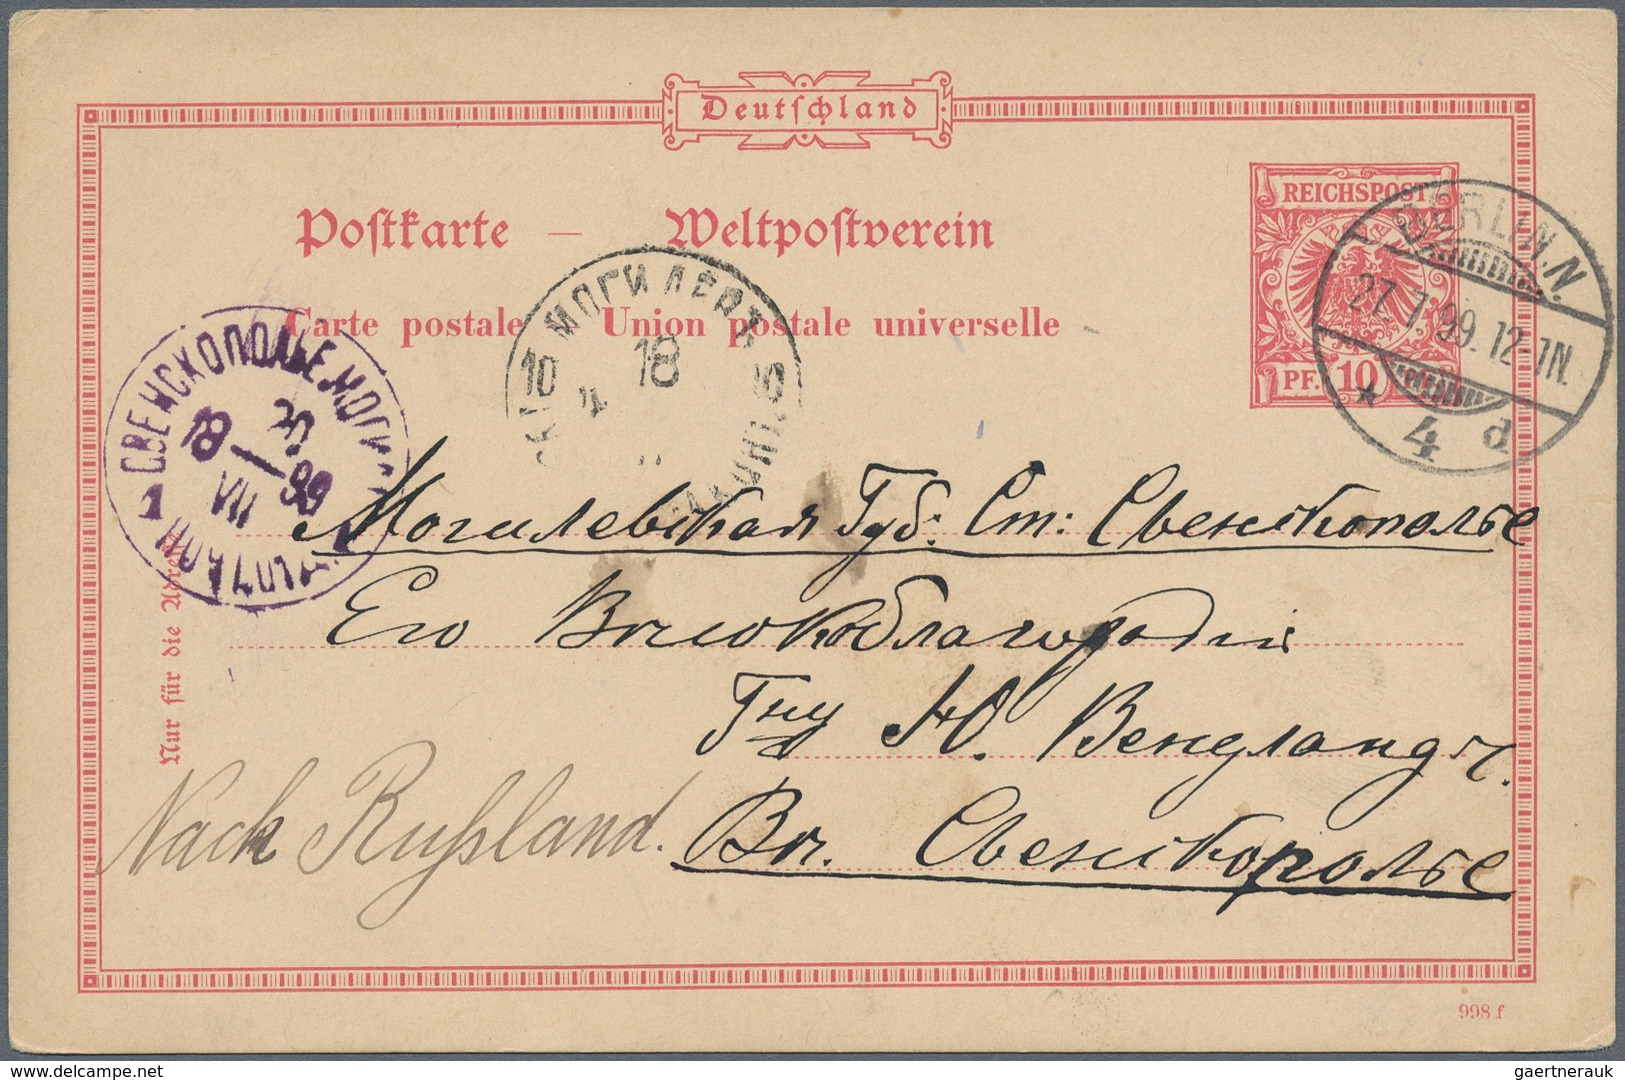 Deutschland
Postkarte — Weltpostverein
Carte postale — Union postale universelle
REICHSPOST
PF. 10
BERLIN. N.
27. 7. 99. 12-1N.
* 4 d
МОГИЛЕВЪ
10 18
4
СВЕНСКОПОЛЬЕ, МОГИ
18 — 99
VII
1
Nur für die Adresse
Могилевская Губ: Ст: Свенскополье
Его Высокоблагородiю
Гну Ю. Вендландъ.
Въ. Свенскополье
Nach Rußland.
998 f
delcampe.net
gaertnerauk